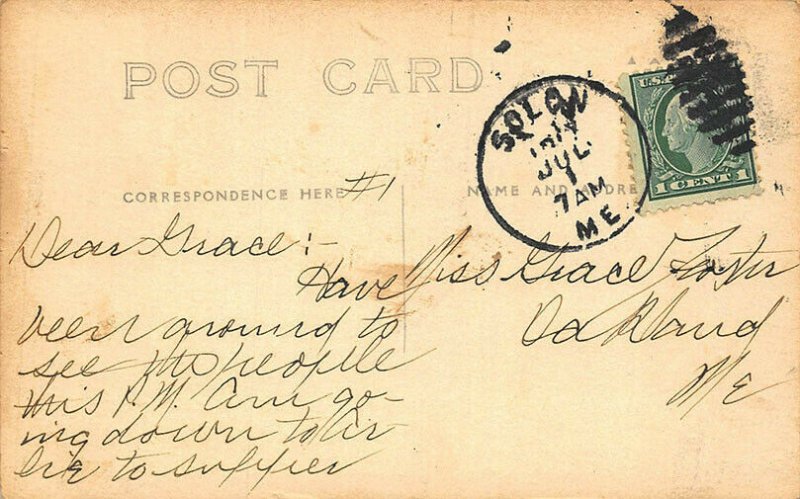 POST CARD
SOLON
1914
JUL
1
7 AM
ME
U.S.
1 CENT 1
CORRESPONDENCE HERE #1
NAME AND ADDRE
Dear Grace:-
Have
been around to
see the people
this P.M. Am go-
ing down to Ar-
bie to supper
Miss Grace Foster
Oakland
Me